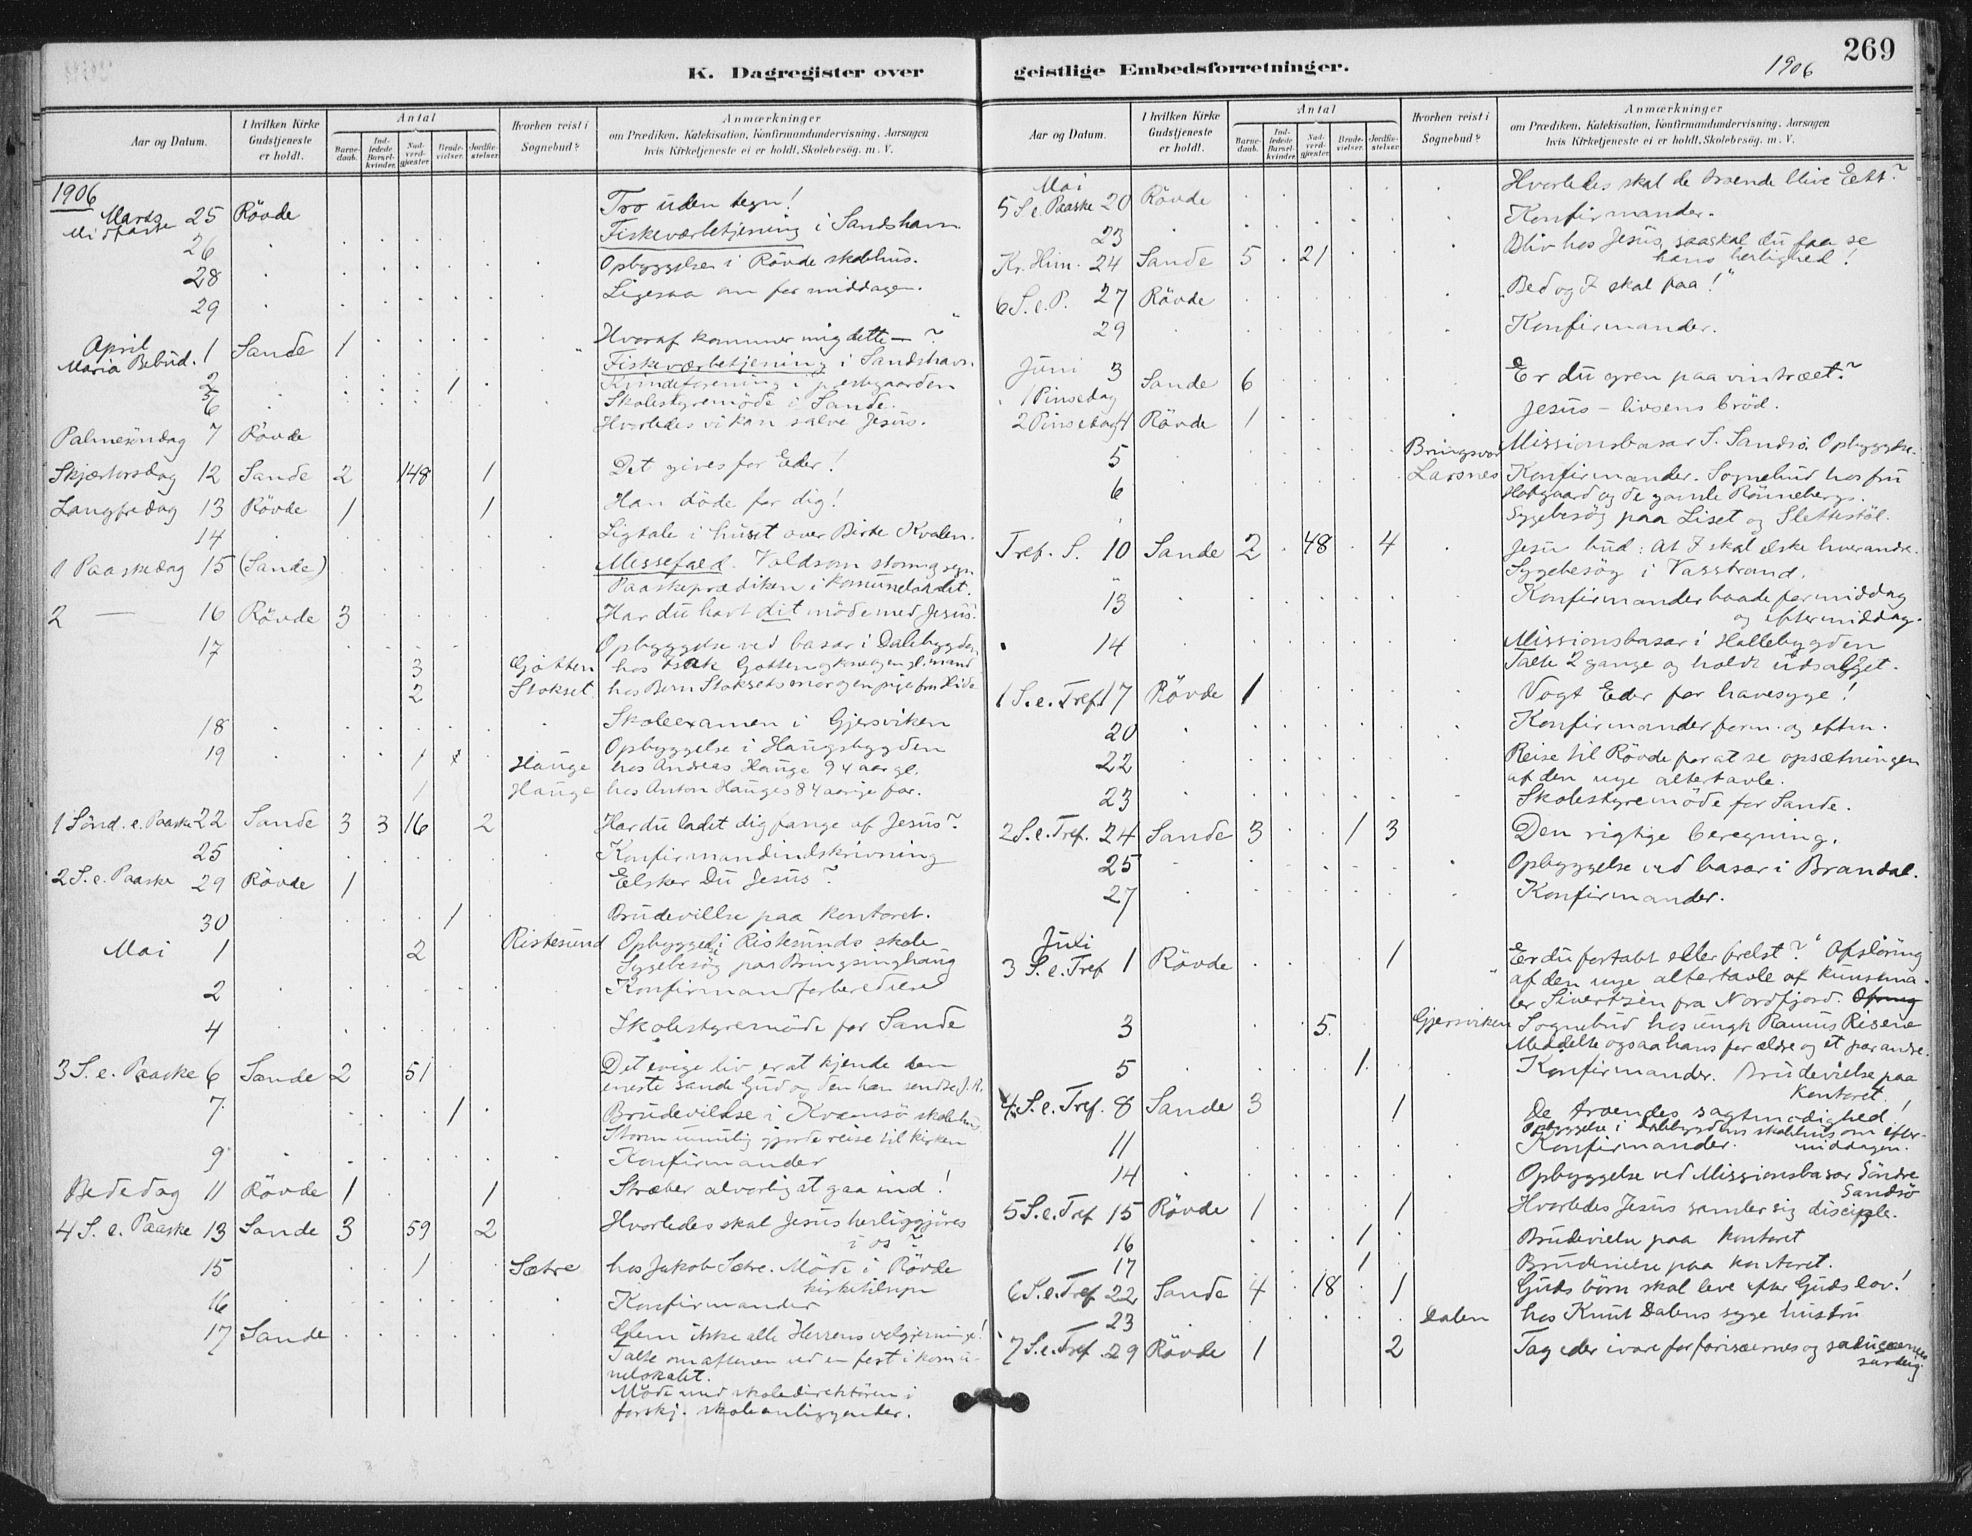 269
1906
K. Dagregister over geistlige Embedsforretninger.
Aar og Datum.
I hvilken Kirke Gudstjeneste er holdt.
Antal
Barne-daab.
Ind-ledede Barsel-kvinder.
Nad-verd-gjæster.
Brude-vielser.
Jordfæ-stelser.
Hvorhen reist i Sognebud?
Anmærkninger
om Prædiken, Katekisation, Konfirmandundervisning, Aarsagen
hvis Kirketjeneste ei er holdt, Skolebesøg. m. V.
1906
Marts 25 Rövde Tro uden tegn!
Midfaste
26 Fiskeværbetjening i Sandshavn
28 Opbyggelse i Rövde skolehus.
29 Ligesaa om formiddagen.
April 1 Sande 1 Hvoraf kommer mig dette — ?
Maria Bebud.
2 Fiskeværbetjening i Sandshavn.
5 1 Kvindeforening i prestgaarden
6 Skolestyremöde i Sande.
Palmesöndag 7 Rövde Hvorledes vi kan salve Jesus.
Skjærtorsdag 12 Sande 2 148 1 Det gives for Eder!
Langfredag 13 Rövde 1 1 Han döde for dig!
14 Ligtale i huset over Birte Kvalen.
1 Paaskedag 15 (Sande) Messefald. Voldsom storm og regn
Paaskeprædiken i komunelokalet.
2 — 16 Rövde 3 Har du havt dit möde med Jesus?
17 Opbyggelse ved basar i Dalebygden
3 Gjötten hos
2 Stokset hos Bern Stoksets
18 Skoleexamen i Gjersviken
19 Opbyggelse i Haugsbygden
1 Hauge hos Andreas Hauge 94 aar gl.
1 Hauge hos Anton Hauges 84 aarige far.
1 Sönd. e. Paaske 22 Sande 3 3 16 2 Har du ladet dig fange af Jesus?
25 Konfirmandindskrivning
2 S. e. Paaske 29 Rövde 1 Elsker Du Jesus?
30 1 Brudevielse paa kontoret.
Mai 1 2 Ristesund Opbyggelse i Ristesunds skole
Sygebesög paa Bringsinghaug
2 Konfirmandforberedelse
4 Skolestyremöde for Sande
3 S. e. Paaske 6 Sande 2 51 Det evige liv er at kjende den
eneste sande Gud og den han sendte J. K.
7 1 Brudevielse i Kvamsö skolehus
Storm umulig gjorde reise til kirken
9 Konfirmander
Bededag 11 Rövde 1 1 Stræber alvorlig at gaa ind!
4 S. e. Paaske 13 Sande 3 59 2 Hvorledes skal Jesus herliggjöres
i os?
15 1 Sætre hos Jakob Sætre. Möde i Rövde
kirketilsyn
16 Konfirmander
17 Sande Glem ikke alle Herrens velgjerninger!
Talte om aftenen ved en fest i komu-
nelokalet.
Möde med skoledirektören i
forskj. skoleanliggender.
Aar og Datum.
I hvilken Kirke Gudstjeneste er holdt.
Antal
Barne-daab.
Ind-ledede Barsel-kvinder.
Nad-verd-gjæster.
Brude-vielser.
Jordfæ-stelser.
Hvorhen reist i Sognebud?
Anmærkninger
om Prædiken, Katekisation, Konfirmandundervisning, Aarsagen
hvis Kirketjeneste ei er holdt, Skolebesøg. m. V.
Mai
5 S. e. Paaske 20 Rövde Hvorledes skal de troende blive Eett?
23 Konfirmander.
Kr. Him. 24 Sande 5 21 Bliv hos Jesus, saa skal du faa se
hans herlighed!
6 S. e. P. 27 Rövde "Bed og I skal faa!"
29 Konfirmander.
Juni 3 Sande 6 Er du gren paa vintræet?
1 Pinsedag
2 Pinsedag 4 Rövde 1 Jesus – livsens bröd.
5 Bringsvor Missionsbasar S. Sandsö. Opbyggelse.
6 Larsnes Konfirmander. Sognebud hos fru
Hofgaard og de gamle Rönnebergs.
Sygebesög paa Liset og Slettestöl.
Tref. S. 10 Sande 2 48 4 Jesu bud: At I skal elske hverandre.
Sygebesög i Vasstrand.
13 Konfirmander baade formiddag
og eftermiddag.
14 Missionsbasar i Hallebygden
Talte 2 gange og holdt udsalget.
1 S. e. Tref. 17 Rövde 1 Vogt Eder for havesyge!
20 Konfirmander form. og efterm.
22 Reise til Rövde for at se opsætningen
af den nye altertavle.
23 Skolestyremöde for Sande.
2 S. e. Tref. 24 Sande 3 1 3 Den rigtige beregning.
25 Opbyggelse ved basar i Brandal.
27 Konfirmander.
Juli
3 S. e. Tref 1 Rövde 1 Er du fortabt eller frelst? Afslöring
af den nye altertavle af kunstma-
ler Sivertsen fra Nordfjord.
3 5 Gjersviken Sognebud hos ungk. Rasmus Risene
Meddelte ogsaa hans forældre og et par andre.
5 1 Konfirmander. Brudevielse paa
kontoret.
4 S. e. Tref. 8 Sande 3 1 De troendes sagtmodighed!
Opbyggelse i Dalebygdens skolehus om efter-
middagen.
11 Konfirmander.
14 Opbyggelse ved Missionsbasar Söndre
Sandsö
5 S. e. Tref 15 Rövde 1 1 Hvorledes Jesus samler sig disciple.
16 1 Brudevielse paa kontoret
17 1 Brudevielse paa kontoret.
6 S. e. Tref 22 Sande 4 18 1 Guds börn skal leve efter Guds lov!
23 Dalen hos Knut Dalens syge hustru
7 S. e. Tref 29 Rövde 1 2 Tag eder ivare for farisæernes og saducæernes
surdeig.